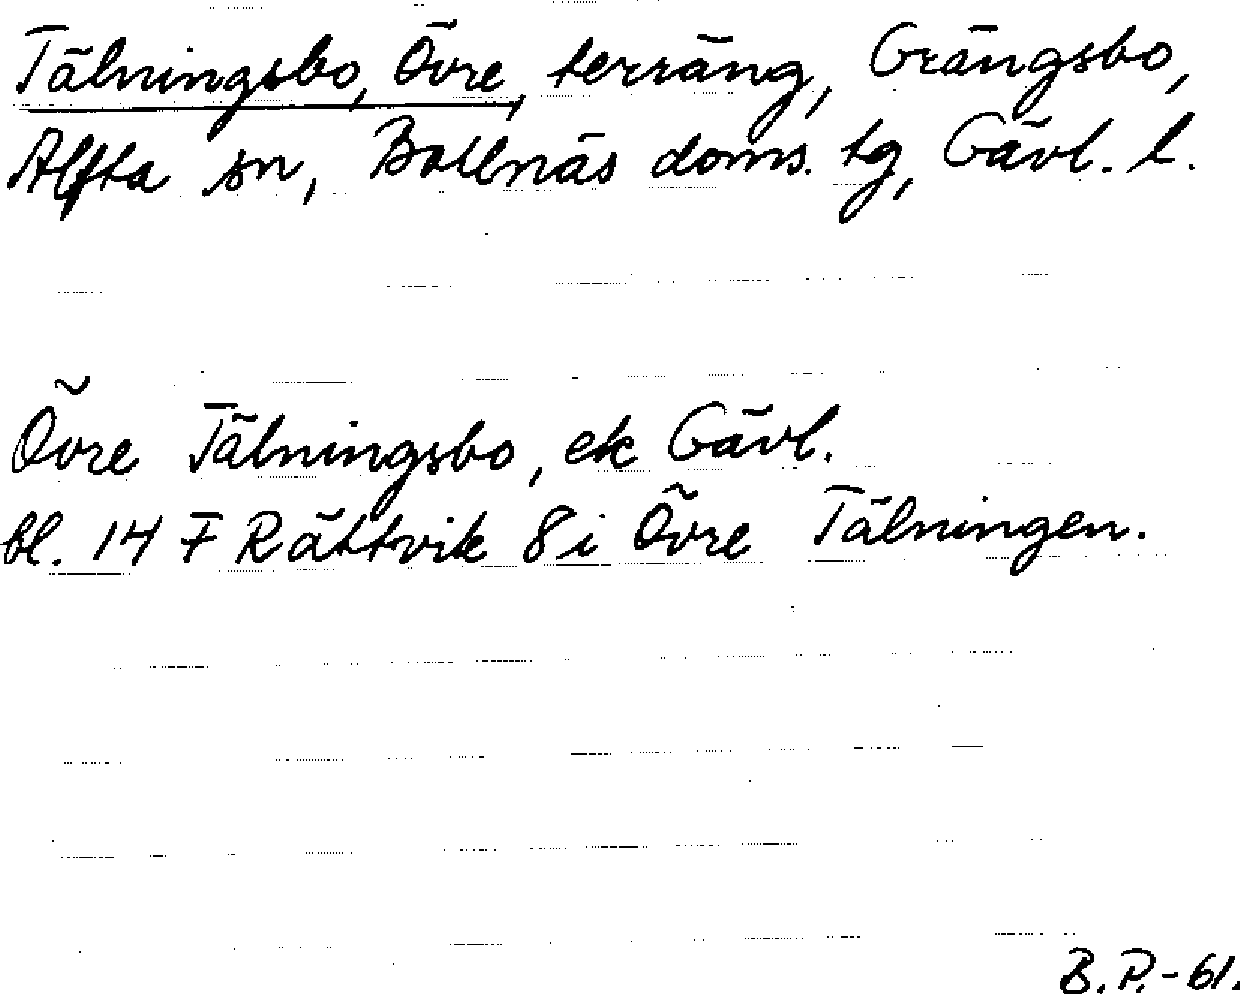 Tälningsbo, Övre, terräng, Grängsbo,
Alfta sn, Bollnäs doms. tg, Gävl. l.
Övre Tälningsbo, ek Gävl.
bl. 14 F Rättvik 8 i Övre Tälningen.
B.P.-61.